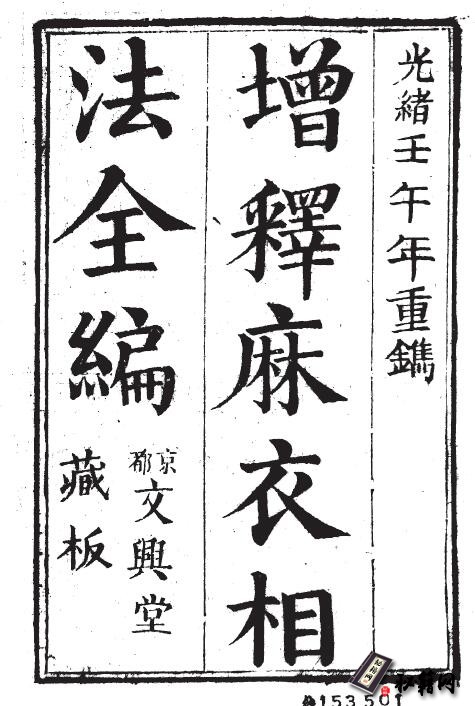 光緒壬午年重鐫
增釋麻衣相
法全編
京都
文興堂
藏板
秘籍网
153501